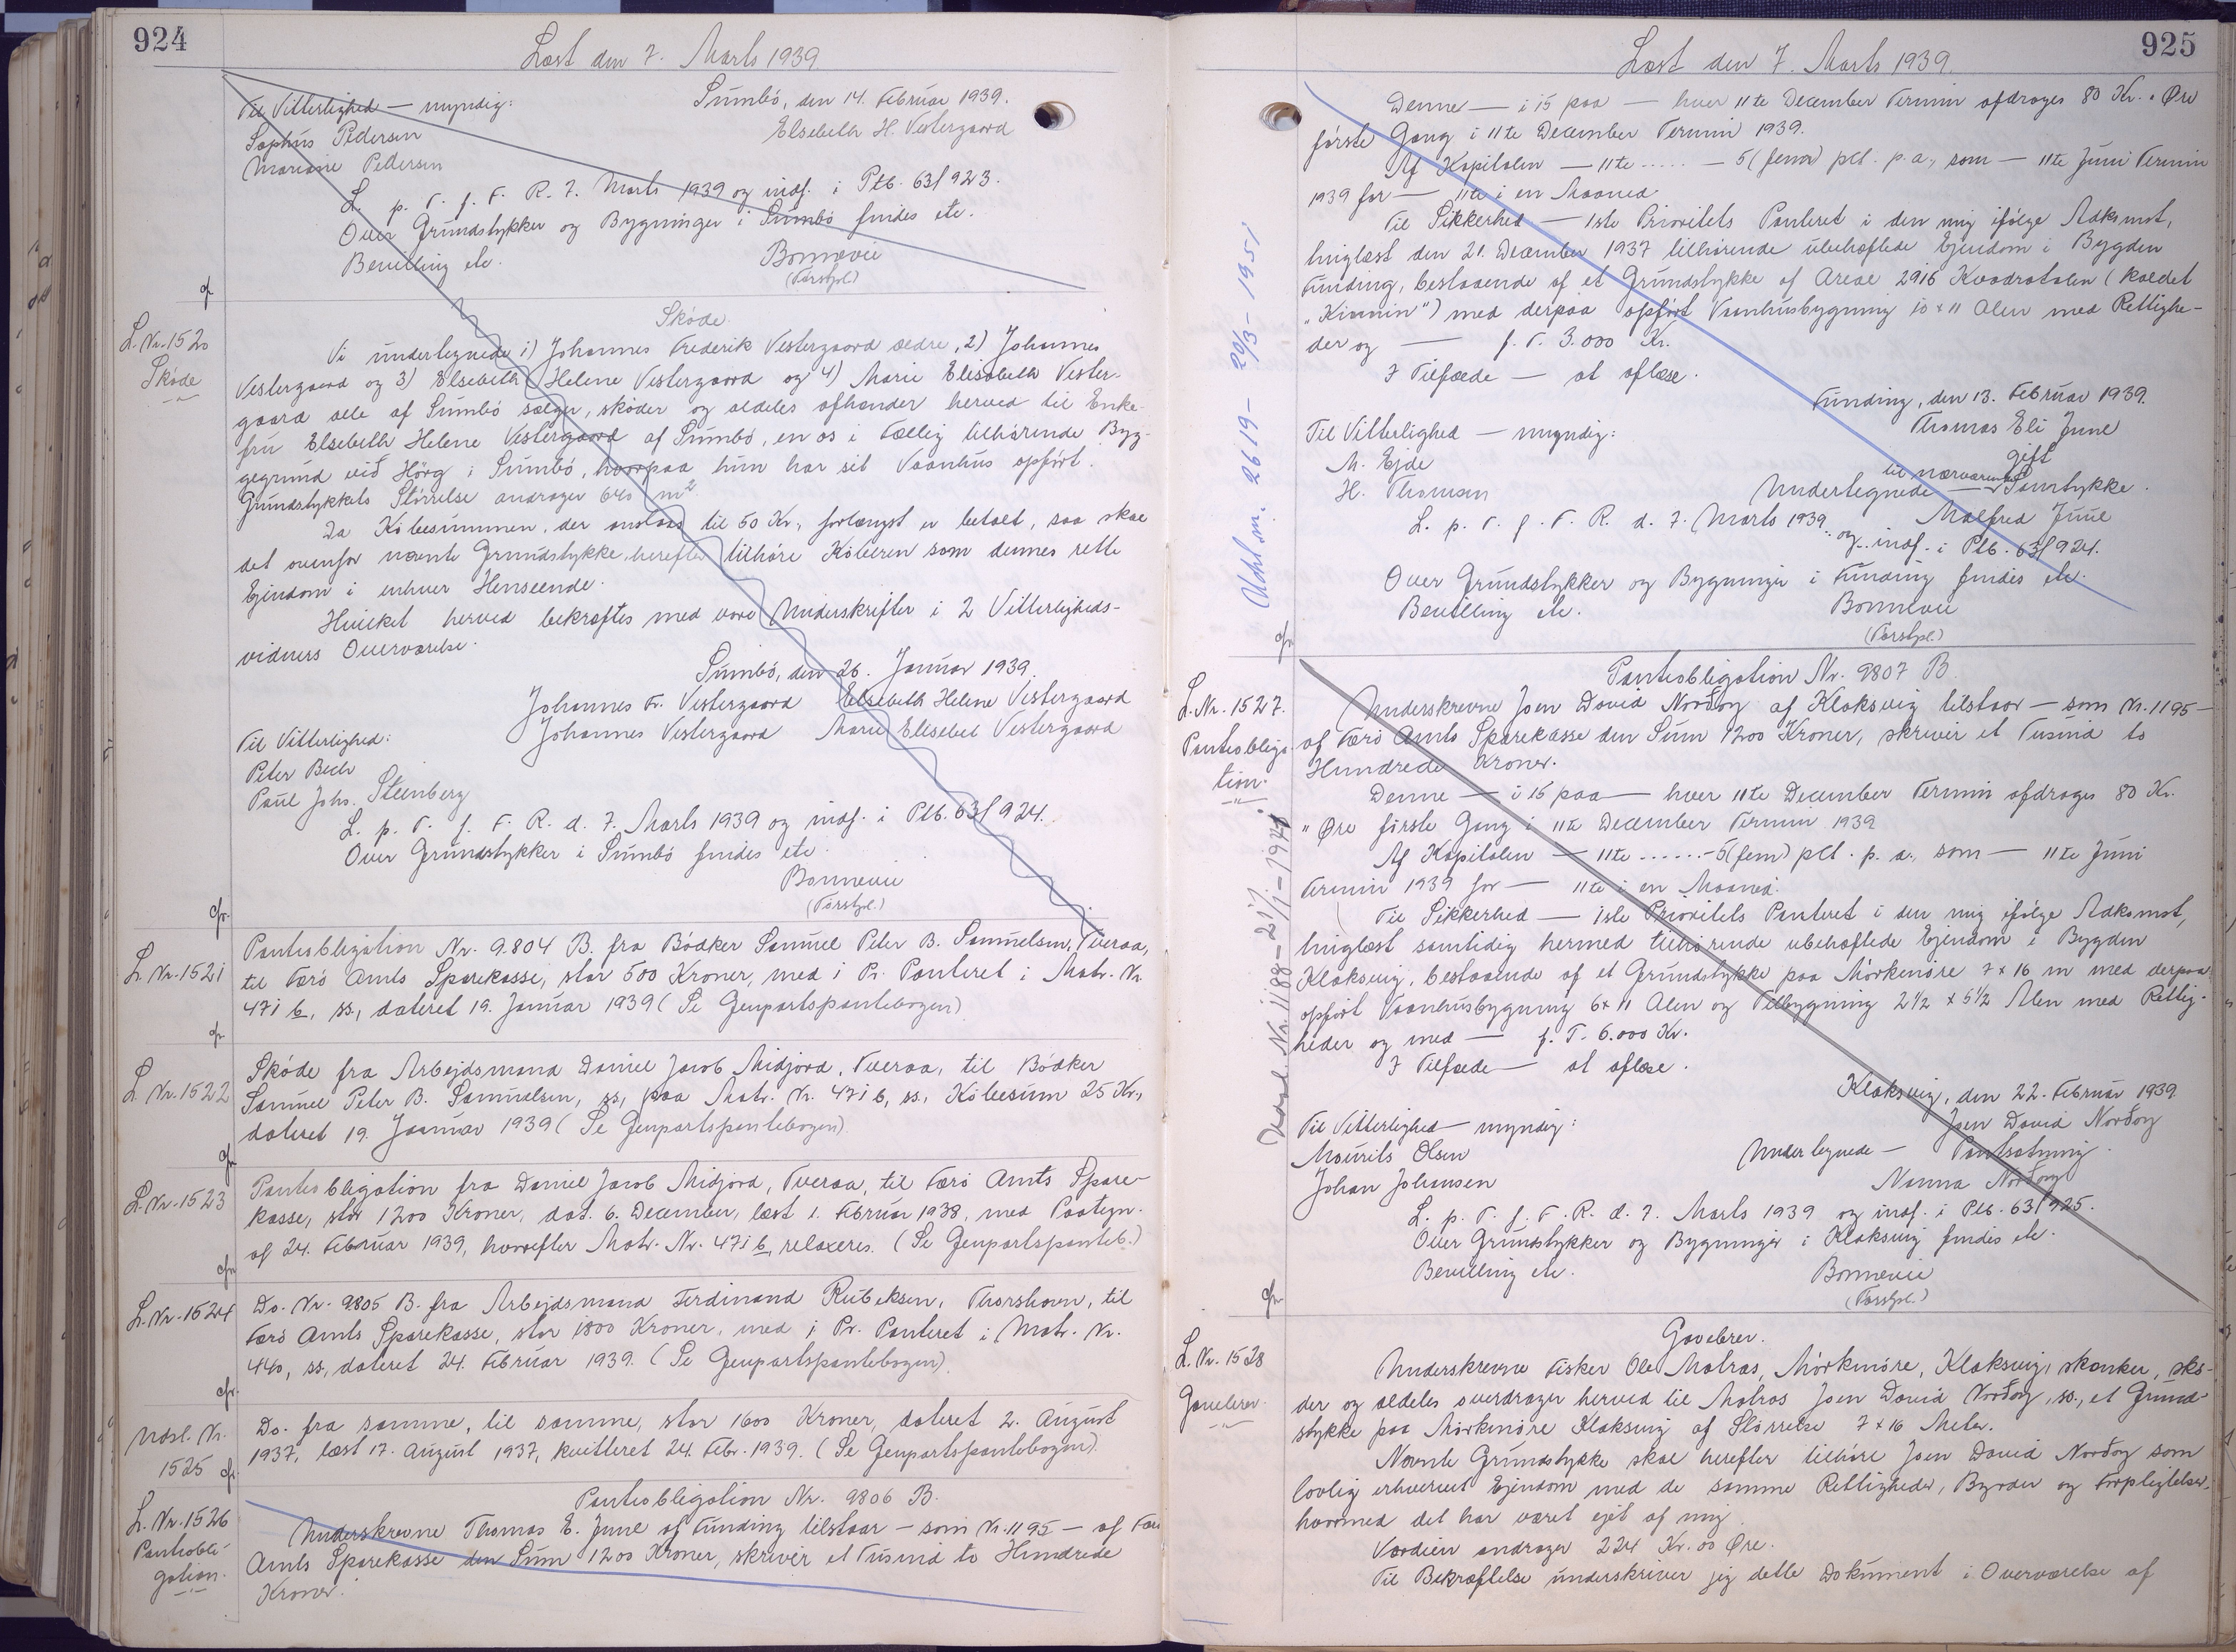 924
Læst den 7. Marts 1939.
Til Vitterlighed — myndig:
Sumbö, den 14. Februar 1939.
Sophus Pedersen
Elsebeth H. Vestergaard
Marianne Pedersen
L. p. T. f. F. R. 7. Marts 1939 og indf. i Ptb. 63/923.
Over Grundstykker og Bygninger i Sumbö findes etc.
Bevilling etc.
Bonnevie
(Forstpl.)
cfr.
L. Nr. 1520
Sköde
Sköde.
Vi undertegnede 1) Johannes Frederik Vestergaard ældre, 2) Johannes
Vestergaard og 3) Elsebeth Helene Vestergaard og 4) Marie Elisabeth Vester-
gaard alle af Sumbö sælger, sköder og aldeles afhænder herved til Enke-
fru Elsebeth Helene Vestergaard af Sumbö, en os i Fællig tilhörende Byg-
gegrund við Hörg i Sumbö, hvorpaa hun har sit Vaanhus opfört.
Grundstykkets Störrelse andrager 640 m²
Da Köbesummen, der anslaas til 50 Kr., forlængst er betalt, saa skal
det ovenfor nævnte Grundstykke herefter tilhöre Köberen som dennes rette
Ejendom i enhver Henseende.
Hvilket herved bekræftes med vore Underskrifter i 2 Vitterligheds-
vidners Overværelse.
Sumbö, den 26. Januar 1939.
Johannes Fr. Vestergaard Elsebeth Helene Vestergaard
Johannes Vestergaard Marie Elisebet Vestergaard
Til Vitterlighed:
Peter Bech
Paul Johs. Steenberg
L. p. T. f. F. R. d. 7. Marts 1939 og indf. i Ptb. 63/924.
Over Grundstykker i Sumbö findes etc.
Bonnevie
(Forstpl.)
cfr.
L. Nr. 1521
Panteobligation Nr. 9.804 B. fra Bödker Samuel Peter B. Samuelsen, Tveraa,
til Færö Amts Sparekasse, stor 500 Kroner, med 1 Pr. Panteret i Matr. Nr.
471 b, ss., dateret 19. Januar 1939 (Se Genpartspantebogen)
cfr
L. Nr. 1522
Sköde fra Arbejdsmand Daniel Jacob Midjord, Tveraa, til Bödker
Samuel Peter B. Samuelsen, ss, paa Matr. Nr. 471 b, ss. Köbesum 25 Kr.,
dateret 19. Januar 1939 (Se Genpartspantebogen)
cfr
L. Nr. 1523
Panteobligation fra Daniel Jacob Midjord, Tveraa, til Færö Amts Spare-
kasse, stor 1200 Kroner, dat. 6. December, læst 1. Februar 1938, med Paategn.
af 24. Februar 1939, hvorefter Matr. Nr. 471 b, relaxeres. (Se Genpartspanteb.)
cfr
L. Nr. 1524
Do. Nr. 9805 B. fra Arbejdsmand Ferdinand Rubeksen, Thorshavn, til
Færö Amts Sparekasse, stor 1800 Kroner, med 1 Pr. Panteret i Matr. Nr.
440, ss, dateret 24. Februar 1939. (Se Genpartspantebogen).
cfr.
Udsl. Nr.
1525
Do. fra samme, til samme, stor 1600 Kroner, dateret 2. August
1937, læst 17. August 1937, kvitteret 24. Febr. 1939. (Se Genpartspantebogen).
cfr.
L. Nr. 1526
Panteobli-
gation.
Panteobligation Nr. 9806 B.
Underskrevne Thomas E. Juul af Funding tilstaar — som Nr. 1195 — af Færö
Amts Sparekasse den Sum 1200 Kroner, skriver et Tusind to Hundrede
Kroner.
925
Læst den 7. Marts 1939.
Denne — i 15 paa — hver 11te December Termin afdrages 80 Kr. „ Öre
förste Gang i 11te December Termin 1939.
Af Kapitalen — 11te ..... — 5 (fem) pCt. p. a., som — 11te Juni Termin
1939 for — 11te i en Maaned
Til Sikkerhed — 1ste Prioritets Panteret i den mig ifölge Adkomst,
tinglæst den 21. December 1937 tilhörende ubehæftede Ejendom i Bygden
Funding, bestaaende af et Grundstykke af Areal 2916 Kvadratalen (kaldet
„Kinnin") med derpaa opfört Vaanhusbygning 10 x 11 Alen med Rettighe-
der og — f. T. 3.000 Kr.
I Tilfælde — at aflæse.
Funding, den 13. Februar 1939.
Thomas Eli Juul
Til Vitterlighed — myndig:
gift
M. Ejde
H. Thomsen
til nærværende
Undertegnede — Samtykke.
Malfred Juul
L. p. T. f. F. R. d. 7. Marts 1939 og indf. i Ptb. 63/924.
Over Grundstykker og Bygninger i Funding findes etc.
Bevilling etc.
Bonnevie
(Forstpl.)
2619 - 20/3 - 1951
cfr.
L. Nr. 1527.
Panteobliga-
tion.
Panteobligation Nr. 9807 B.
Underskrevne Joen David Norðoy af Klaksvig tilstaar — som Nr. 1195 —
af Færö Amts Sparekasse den Sum 1200 Kroner, skriver et Tusind to
Hundrede Kroner.
Denne — i 15 paa — hver 11te December Termin afdrages 80 Kr.
„ Öre förste Gang i 11te December Termin 1939
Af Kapitalen — 11te ...... - 5 (fem) pCt. p. a., som — 11te Juni
Termin 1939 for — 11te i en Maaned.
Til Sikkerhed — 1ste Prioritets Panteret i den mig ifölge Adkomst,
tinglæst samtidig hermed tilhörende ubehæftede Ejendom i Bygden
Klaksvig, bestaaende af et Grundstykke paa Mörkinöre 7 x 16 m med derpaa
opfört Vaanhusbygning 6 x 11 Alen og Tilbygning 2 1/2 x 5 1/2 Alen med Rettig-
heder og med — f. T. 6.000 Kr.
I Tilfælde — at aflæse.
Klaksvig, den 22. Februar 1939.
Joen David Norðoy
Til Vitterlighed — myndig:
Maurits Olsen
Undertegnede — Pantsætning.
Johan Johansen
Nanna Norðoy
L. p. T. f. F. R. d. 7. Marts 1939 og indf. i Ptb. 63/925.
Over Grundstykker og Bygninger i Klaksvig findes etc.
Bevilling etc.
Bonnevie
(Forstpl.)
cfr.
L. Nr. 1528
Gavebrev.
Gavebrev.
Underskrevne Fisker Ole Matras, Mörkinöre, Klaksvig, skænker, skö-
der og aldeles overdrager herved til Matros Joen David Norðoy, ss., et Grund-
stykke paa Mörkinöre Klaksvig af Störrelse 7 x 16 Meter.
Nævnte Grundstykke skal herefter tilhöre Joen David Norðoy som
lovlig erhvervet Ejendom med de samme Rettigheder, Byrder og Forpligtelser,
hvormed det har været ejet af mig.
Værdien andrager 224 Kr. 00 Öre.
Til Bekræftelse underskriver jeg dette Dokument i Overværelse af